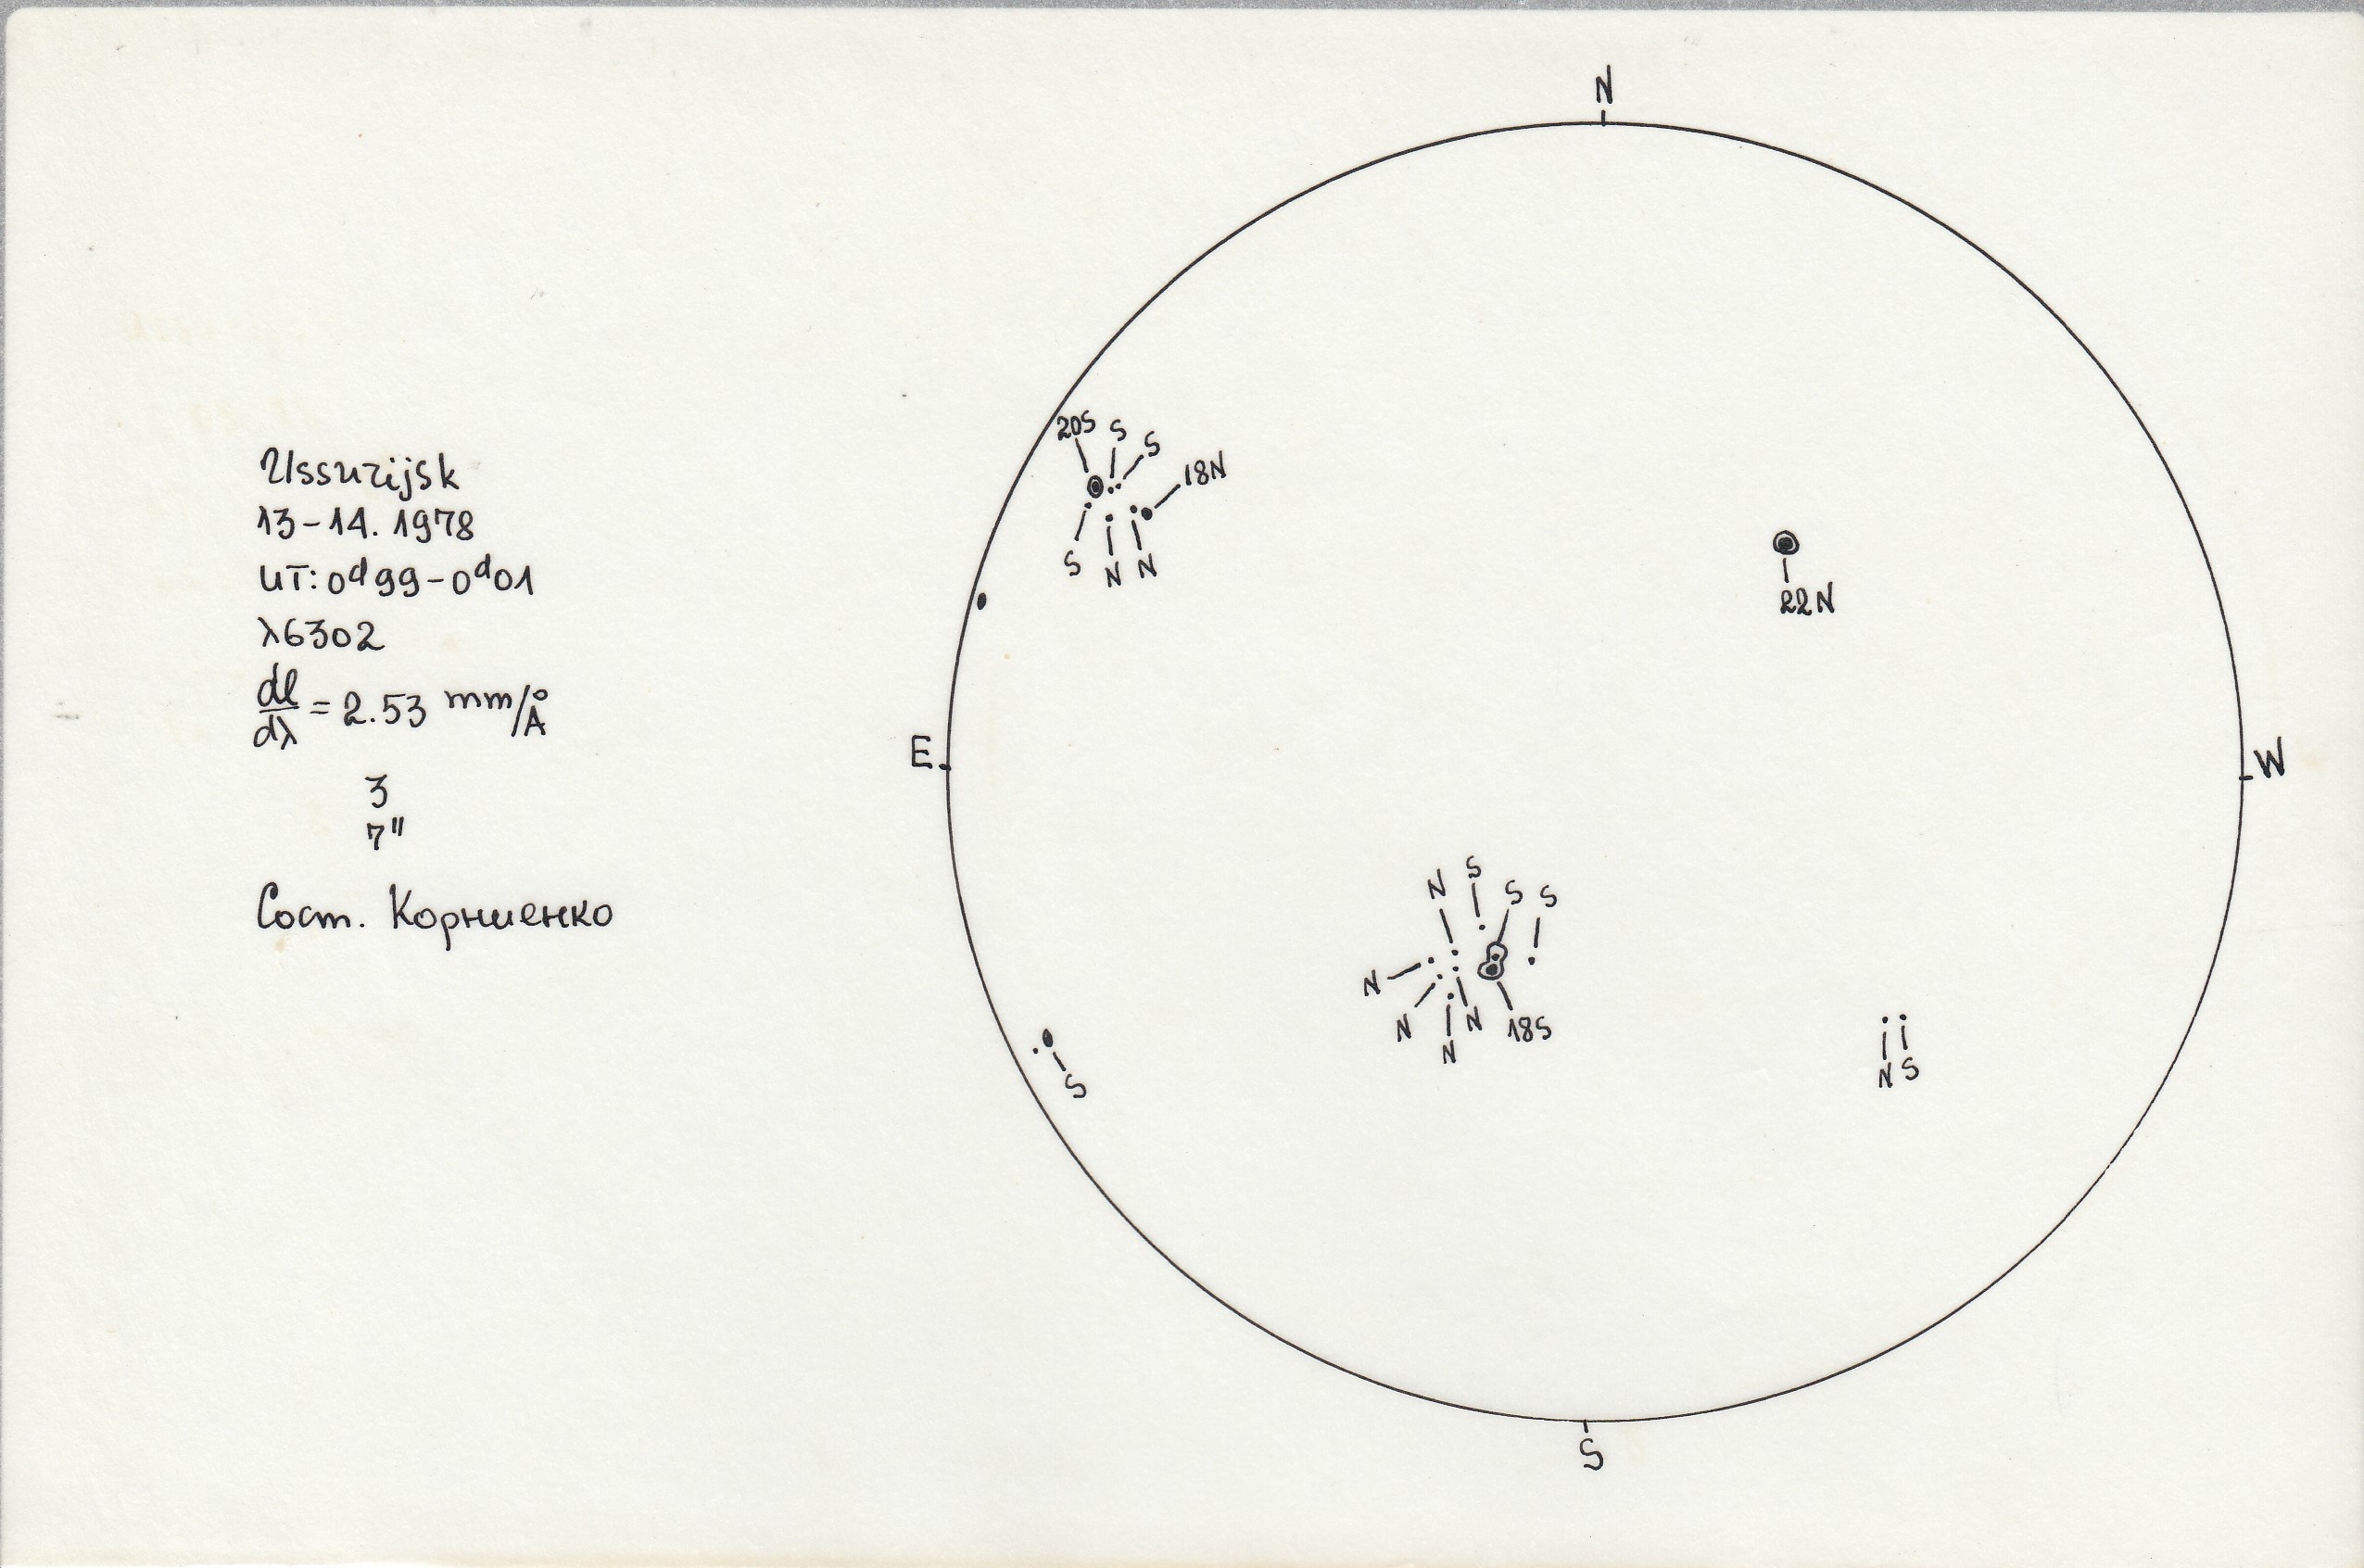 Ussurijsk
13-14. 1978
UT: 0ᵈ99-0ᵈ01
λ6302
dl/dλ = 2.53 mm/Å
3
7"
Сост. Корниенко
N
20S S S
18N
S N N
22N
E
W
N S S S
N
N N N 18S
S
N S
S